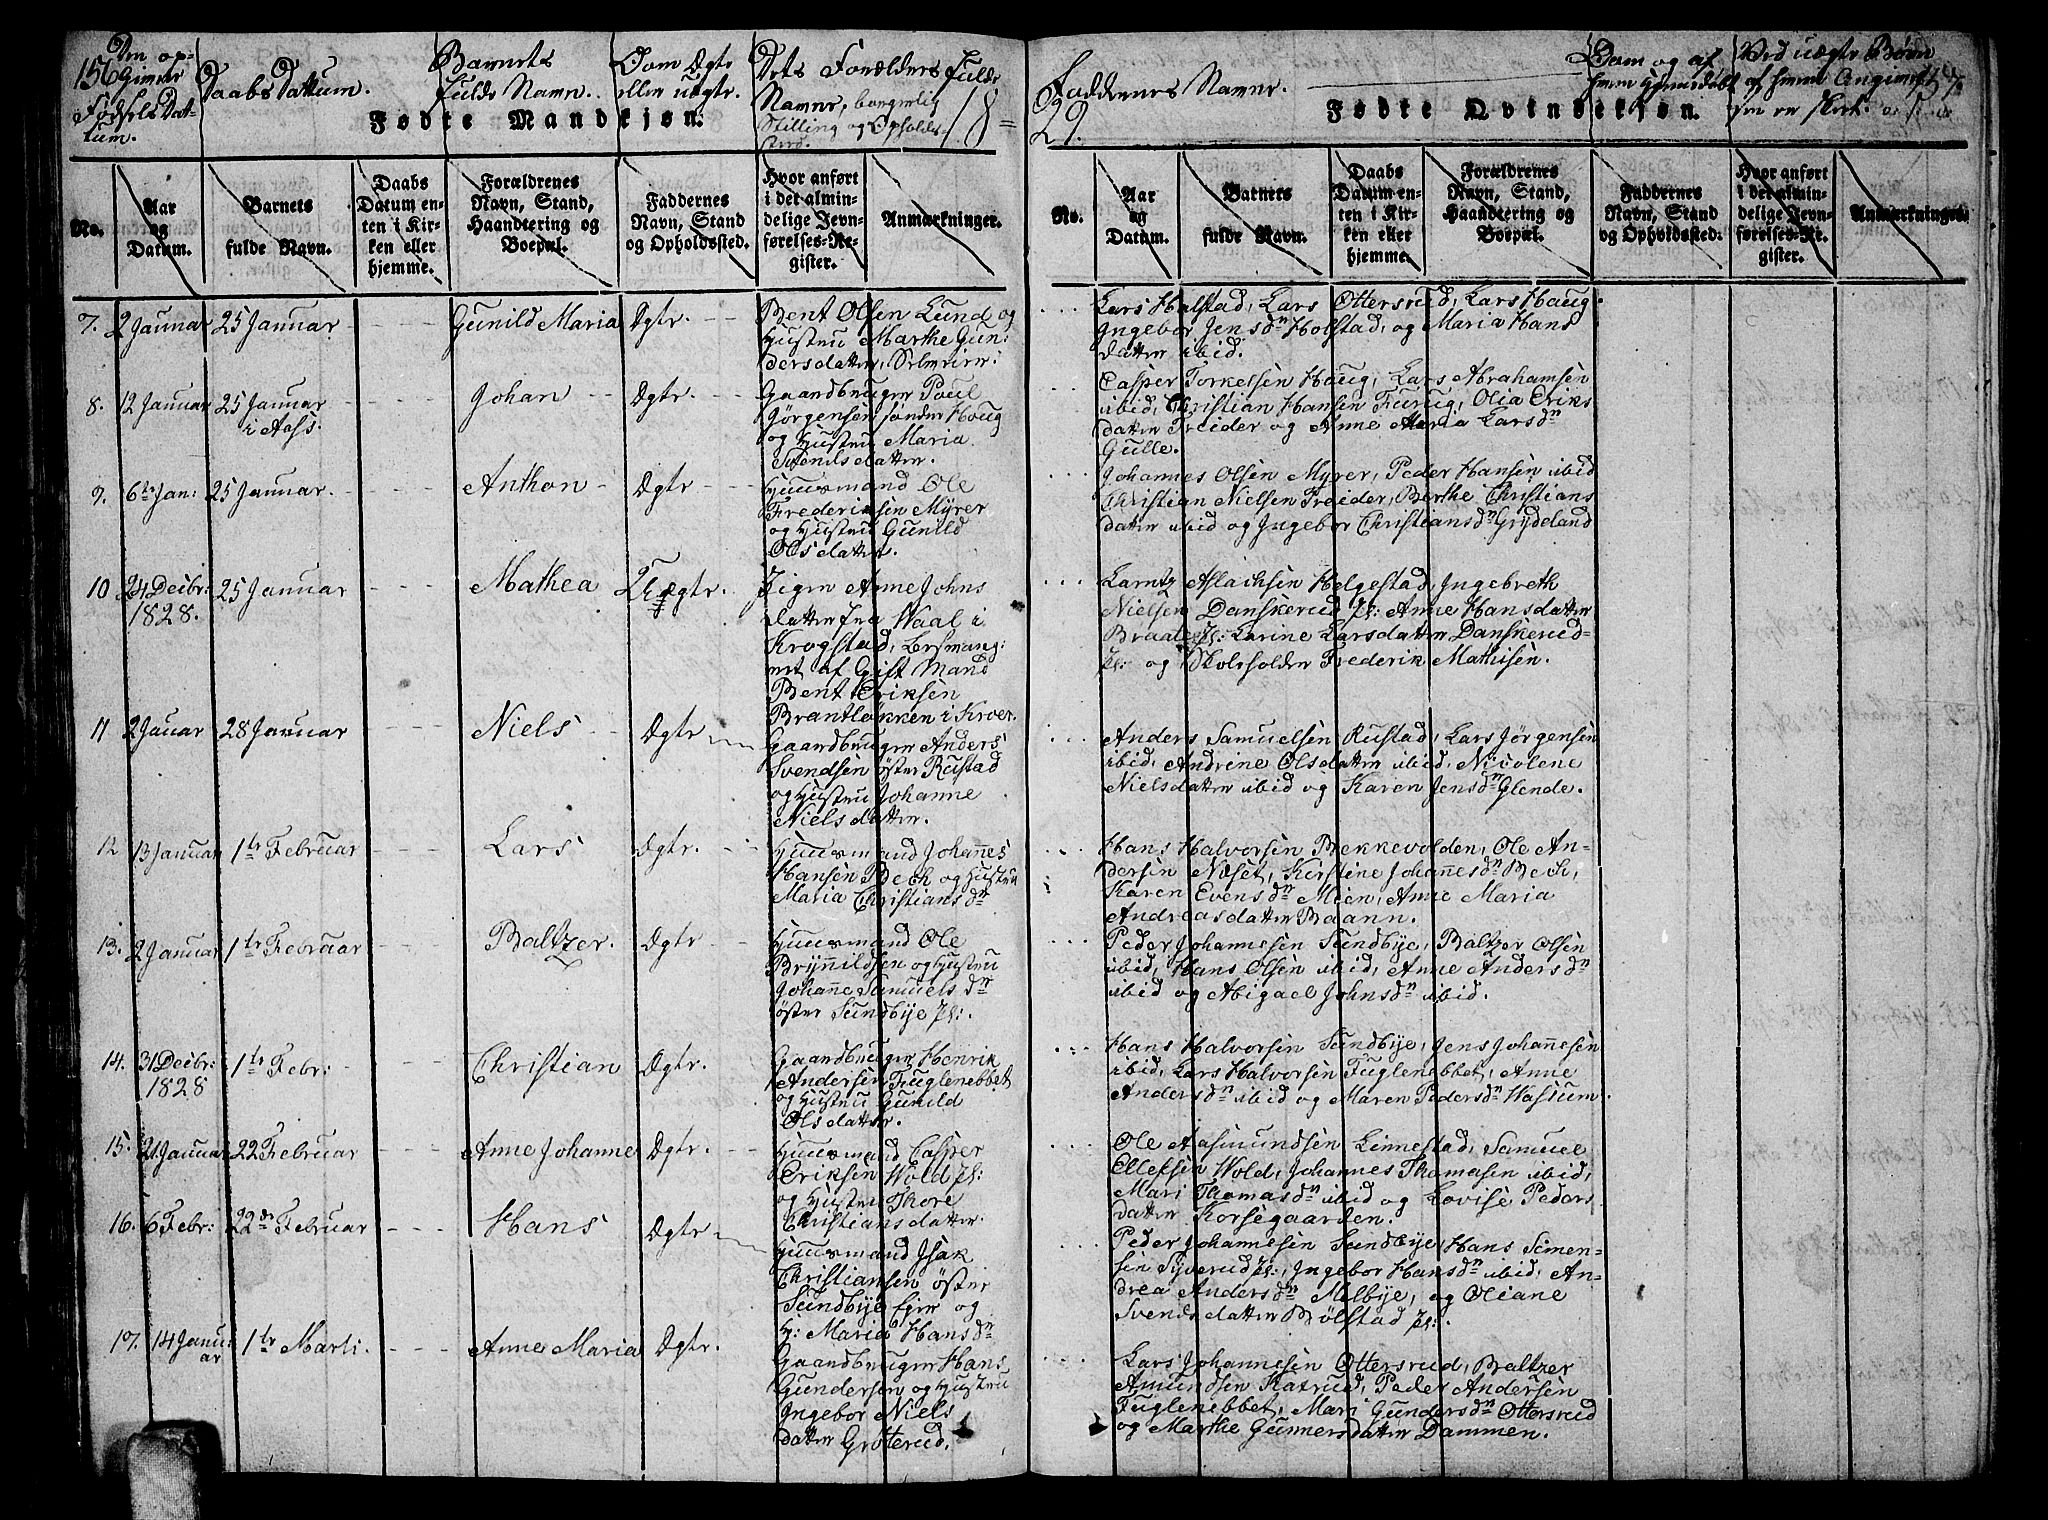 156
Den op-
Daabs Dattum.
Barnets
fulde Navn.
Om Ægte
eller uægte.
Dets Forældres Fulde
Navne, borgerlig
Stilling og Opholds-
18=
Fødsels Dat-
tum.
Fødte Mandkjøn:
29.
Faddernes Navne.
Fødte Qvindekjøn.
Ved uægte Børn
157.
No.
Aar
og
Datum.
Barnets
fulde Navn.
Daabs
Datum en-
ten i Kir-
ken eller
hjemme.
Forældrenes
Navn, Stand,
Haandtering og
Boepæl.
Faddernes
Navn, Stand
og Opholdssted.
Hvor anført
i det almin-
delige Jevn-
førelses-Re-
gister.
Anmærkninger.
No.
Aar
og
Datum.
Barnets
fulde Navn.
Daabs
Datum en-
ten i Kir-
ken eller
hjemme.
Forældrenes
Navn, Stand,
Haandtering og
Boepæl.
Faddernes
Navn, Stand
og Opholdssted.
Hvor anført
i det almin-
delige Jevn-
førelses-Re-
gister.
Anmærkninger.
7. 2 Januar 25 Januar Gunild Maria Ægte.
Bent Olsen Lund og
Hustru Marthe Gun-
dersdatter,
Lars Holstad, Lars Ottersrud, Lars Haug
Ingebor Jensdn Holstad, og Maria Hans
datter ibid.
8. 12 Januar 25 Januar i Aas. Johan Ægte.
Gaardbruger Poul
Jørgensen søndre Houg
og Hustru Maria
Svenilsdatter.
Casper Torkelsen Haug, Lars Abrahamsen
ibid, Christian Hansen Furug, Olia Eriks
datter Freider og Anne Maria Larsdn
Gulle.
9. 6te Jan: 25 Januar. Anthon Ægte
Huusmand Ole
Frederiksen Myrer
og Hustru Gunild
Olsdatter.
Johannes Olsen Myrer, Peder Hansen ibid
Christian Nielsen Freider, Berthe Christians
datter ibid og Ingebor Christiansdn Grydeland
10 24 Decbr: 1828. 25 Januar Mathea Uægte.
Pigen Anne Johns
datter fra Waal i
Krogstad, besvang-
ret af Gift Mand
Bent Eriksen
Brantløkken i Kroer.
Larntz Aslachsen Helgestad, Ingebreth
Nielsen Danskerud Pl: Anne Hansdatter
Braate Pl: Larine Larsdatter Danskerud-
Pl: og Skoleholder Frederik Mathisen.
11 2 Januar 28 Januar Niels Ægte
Gaardbruger Anders
Svendsen øster Rustad
og Hustru Johanne
Nielsdatter.
Anders Samuelsen Rustad, Lars Jørgensen
ibid, Andrine Olsdatter ibid, Nicolene
Nielsdatter ibid og Karen Jensdn Glende.
12 13 Januar 1te Februar Lars Ægte.
Huusmand Johannes
Hansen Bech og Hustru
Maria Christiansdn
Hans Halvorsen Bekkevolden, Ole An-
dersen Næset, Kirstine Johannesdn Bech,
Karen Evensdn Mien, Anne Maria
Andreasdatter Baann.
13. 2 Januar 1te Februar Baltzer. Ægte
Huusmand Ole
Brynnildsen og Hustru
Johanne Samuelsdn
øster Sundbye Pl:
Peder Johannesen Sundbye, Baltzer Olsen
ibid, Hans Olsen ibid, Anne Andersdn
ibid og Abigael Johnsdn ibid.
14. 31 Decbr: 1828 1te Febr: Christian Ægte.
Gaardbruger Henrik
Andersen Fuglenebbet
og Hustru Gunild
Olsdatter.
Hans Halvorsen Sundbye, Jens Johannesen
ibid, Lars Halvorsen Fuglenebbet, Anne
Andersdn ibid og Maren Pedersdn Wasium.
15. 21 Januar 22 Februar Anne Johanne Ægte.
Huusmand Casper
Eriksen Wold Pl:
og Hustru Thore
Christiansdatter.
Ole Aasmundsen Linnestad, Samuel
Ellefsen Wold, Johannes Thomasen ibid,
Mari Thomasdn ibid og Lovise Peders
datter Korsegaarden.
16. 6 Febr: 22de Februar Hans Ægte
Huusmand Isak
Christiansen øster
Sundbye Eier og
H: Maria Hansdn
Peder Johannesen Sundbye, Hans Simen-
sen Syverud Pl:, Ingebor Hansdn ibid, An-
drea Andersdn Melbye, og Oliane
Svendsdatter Bølstad Pl:.
17. 14 Janu-
ar 1te Marti. Anne Maria Ægte.
Gaardbruger Hans
Gundersen og Hustru
Ingebor Niels
datter Grøterud.
Lars Johannesen Ottersrud, Baltzer
Amundsen Katrud, Peder Andersen
Fuglenebbet, Mari Gundersdn Ottersrud
og Marthe Gunnersdatter Dammen.